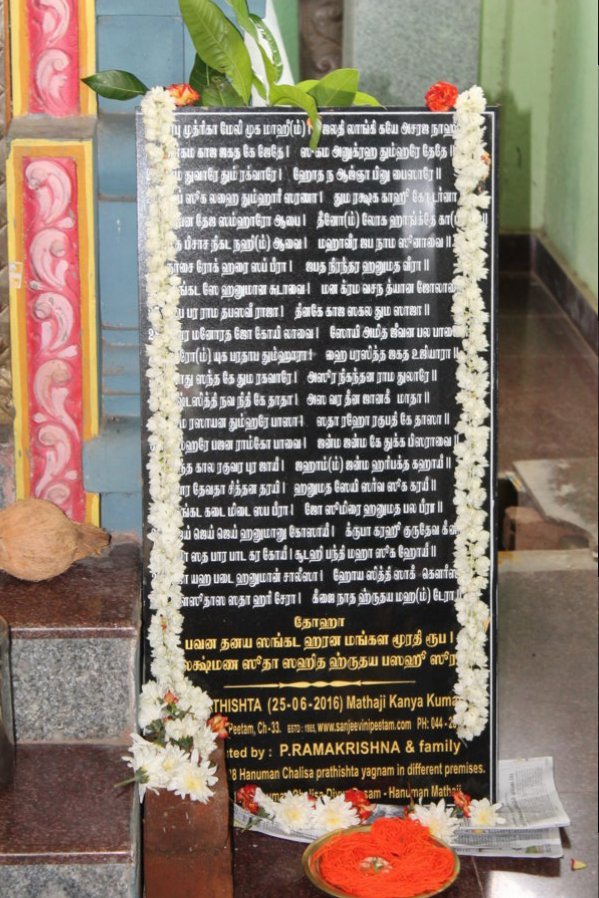 முத்ரிகா மேலி முக மாஹீ(ம்) । ஜலதி லாங்கி கயே அசரஜ
காஜ ஜகத கே ஜேதே । ஸுகம அனுக்ரஹ தும்ஹரே தேதே ॥
துவாரே தும் ரக்வாரே । ஹோத ந ஆஜ்ஞா பினு பைஸாரே ॥
ஸுக லஹை தும்ஹார் ஸரணா । தும ரக்ஷக காஹூ கோ
தேஜ ஸம்ஹாரோ ஆபை । தீனோ(ம்) லோக ஹாங்க்தே
பிசாச நிகட நஹி(ம்) ஆவை । மஹாவீர ஜப நாம ஸுனாவை ॥
ரோக் ஹரை ஸப் பீரா । ஜபத நிரந்தர ஹனுமத வீரா ॥
ஸே ஹனுமான சுடாவை । மன க்ரம வசந த்யான
பர ராம தபஸ்வீ ராஜா । தினகே காஜ ஸகல தும ஸாஜா ॥
மனோரத ஜோ கோயி லாவை । ஸோயி அமித ஜீவன பல
யுக பரதாப தும்ஹாரா । ஹை பரஸித்த ஜகத உஜியாரா ॥
ஸந்த கே தும ரகவாரே । அஸுர நிகந்தன ராம துலாரே ॥
நவ நிதி கே தாதா । அஸ வர தீன ஜானகீ மாதா ॥
ரஸாயன தும்ஹரே பாஸா । ஸதா ரஹோ ரகுபதி கே தாஸா ॥
பஜன ராம்கோ பாவை । ஜன்ம ஜன்ம கே துக்க பிஸராவை ॥
கால ரகுவர புர ஜாயீ । ஜஹாம்(ம்) ஜன்ம ஹரிபக்த கஹாயீ ॥
தேவதா சித்தன தரயீ । ஹனுமத ஸேயி ஸர்வ ஸுக கரயீ ॥
கடை மிடை ஸப பீரா । ஜோ ஸுமிரை ஹனுமத பல பீரா ॥
ஜெய் ஜெய் ஹனுமானு கோஸாயீ । க்ருபா கரஹூ குருதேவ
ஸத பார பாட கர கோயீ । சூடஹி பந்தி மஹா ஸுக ஹோயீ ॥
யஹ படை ஹனுமான் சாலீஸா । ஹோய ஸித்தி ஸாகீ - கௌரீஸா
ஸதா ஹரி சேரா । கீஜை நாத ஹ்ருதய மஹ(ம்) டேரா ॥
தோஹா
பவன தனய ஸங்கட ஹரன மங்கள மூரதி ரூப ।
ஸுதா ஸஹித ஹ்ருதய பஸஹு
(25-06-2016) Mathaji Kanya
Peetam, Ch-33. ESTD : 1985, www.sanjeevinipeetam.com PH: 044 -
by : P.RAMAKRISHNA & family
Hanuman Chalisa prathishta yagnam in different premises.
- Hanuman Mathaji